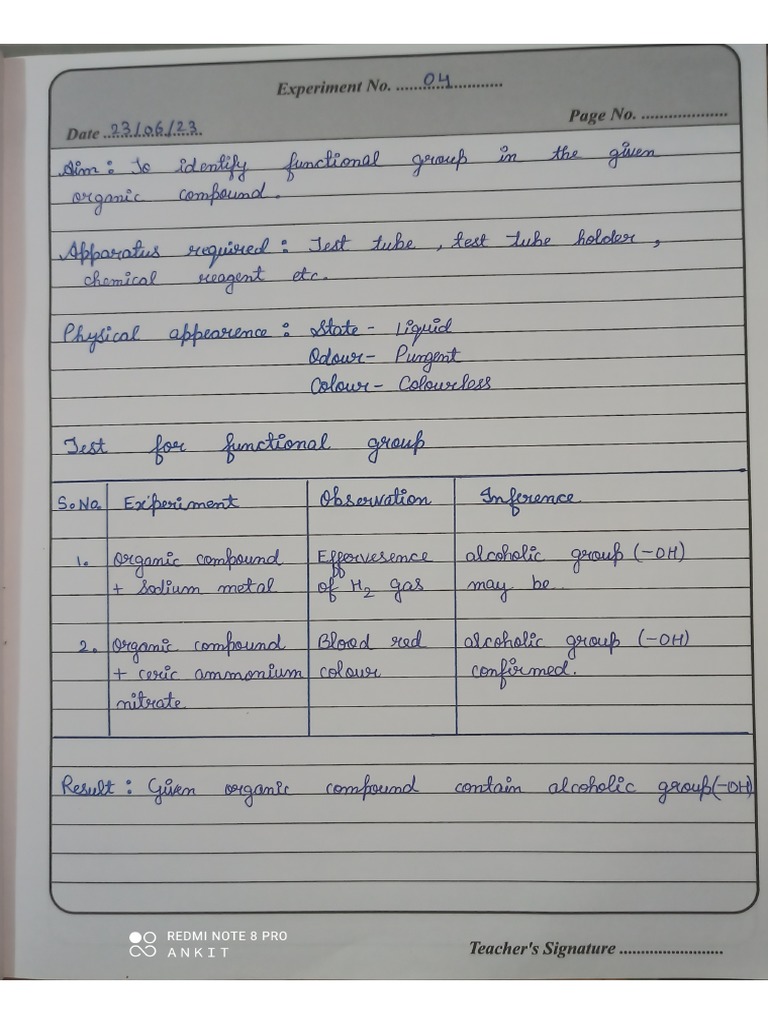 Experiment No. ....04....
Page No. ....................
Date ..23/06/23..
Aim : To identify functional group in the given
organic compound.
Apparatus required : Test tube, test tube holder,
chemical reagent etc.
Physical appearence : State - Liquid
Odour - Pungent
Colour - Colourless
Test for functional group
S.No. Experiment Observation Inference
1. Organic compound Effervesence alcoholic group (-OH)
+ Sodium metal of H2 gas may be
2. Organic compound Blood red alcoholic group (-OH)
+ ceric ammonium colour confirmed.
nitrate
Result : Given organic compound contain alcoholic group(-OH)
REDMI NOTE 8 PRO
ANKIT
Teacher's Signature ........................